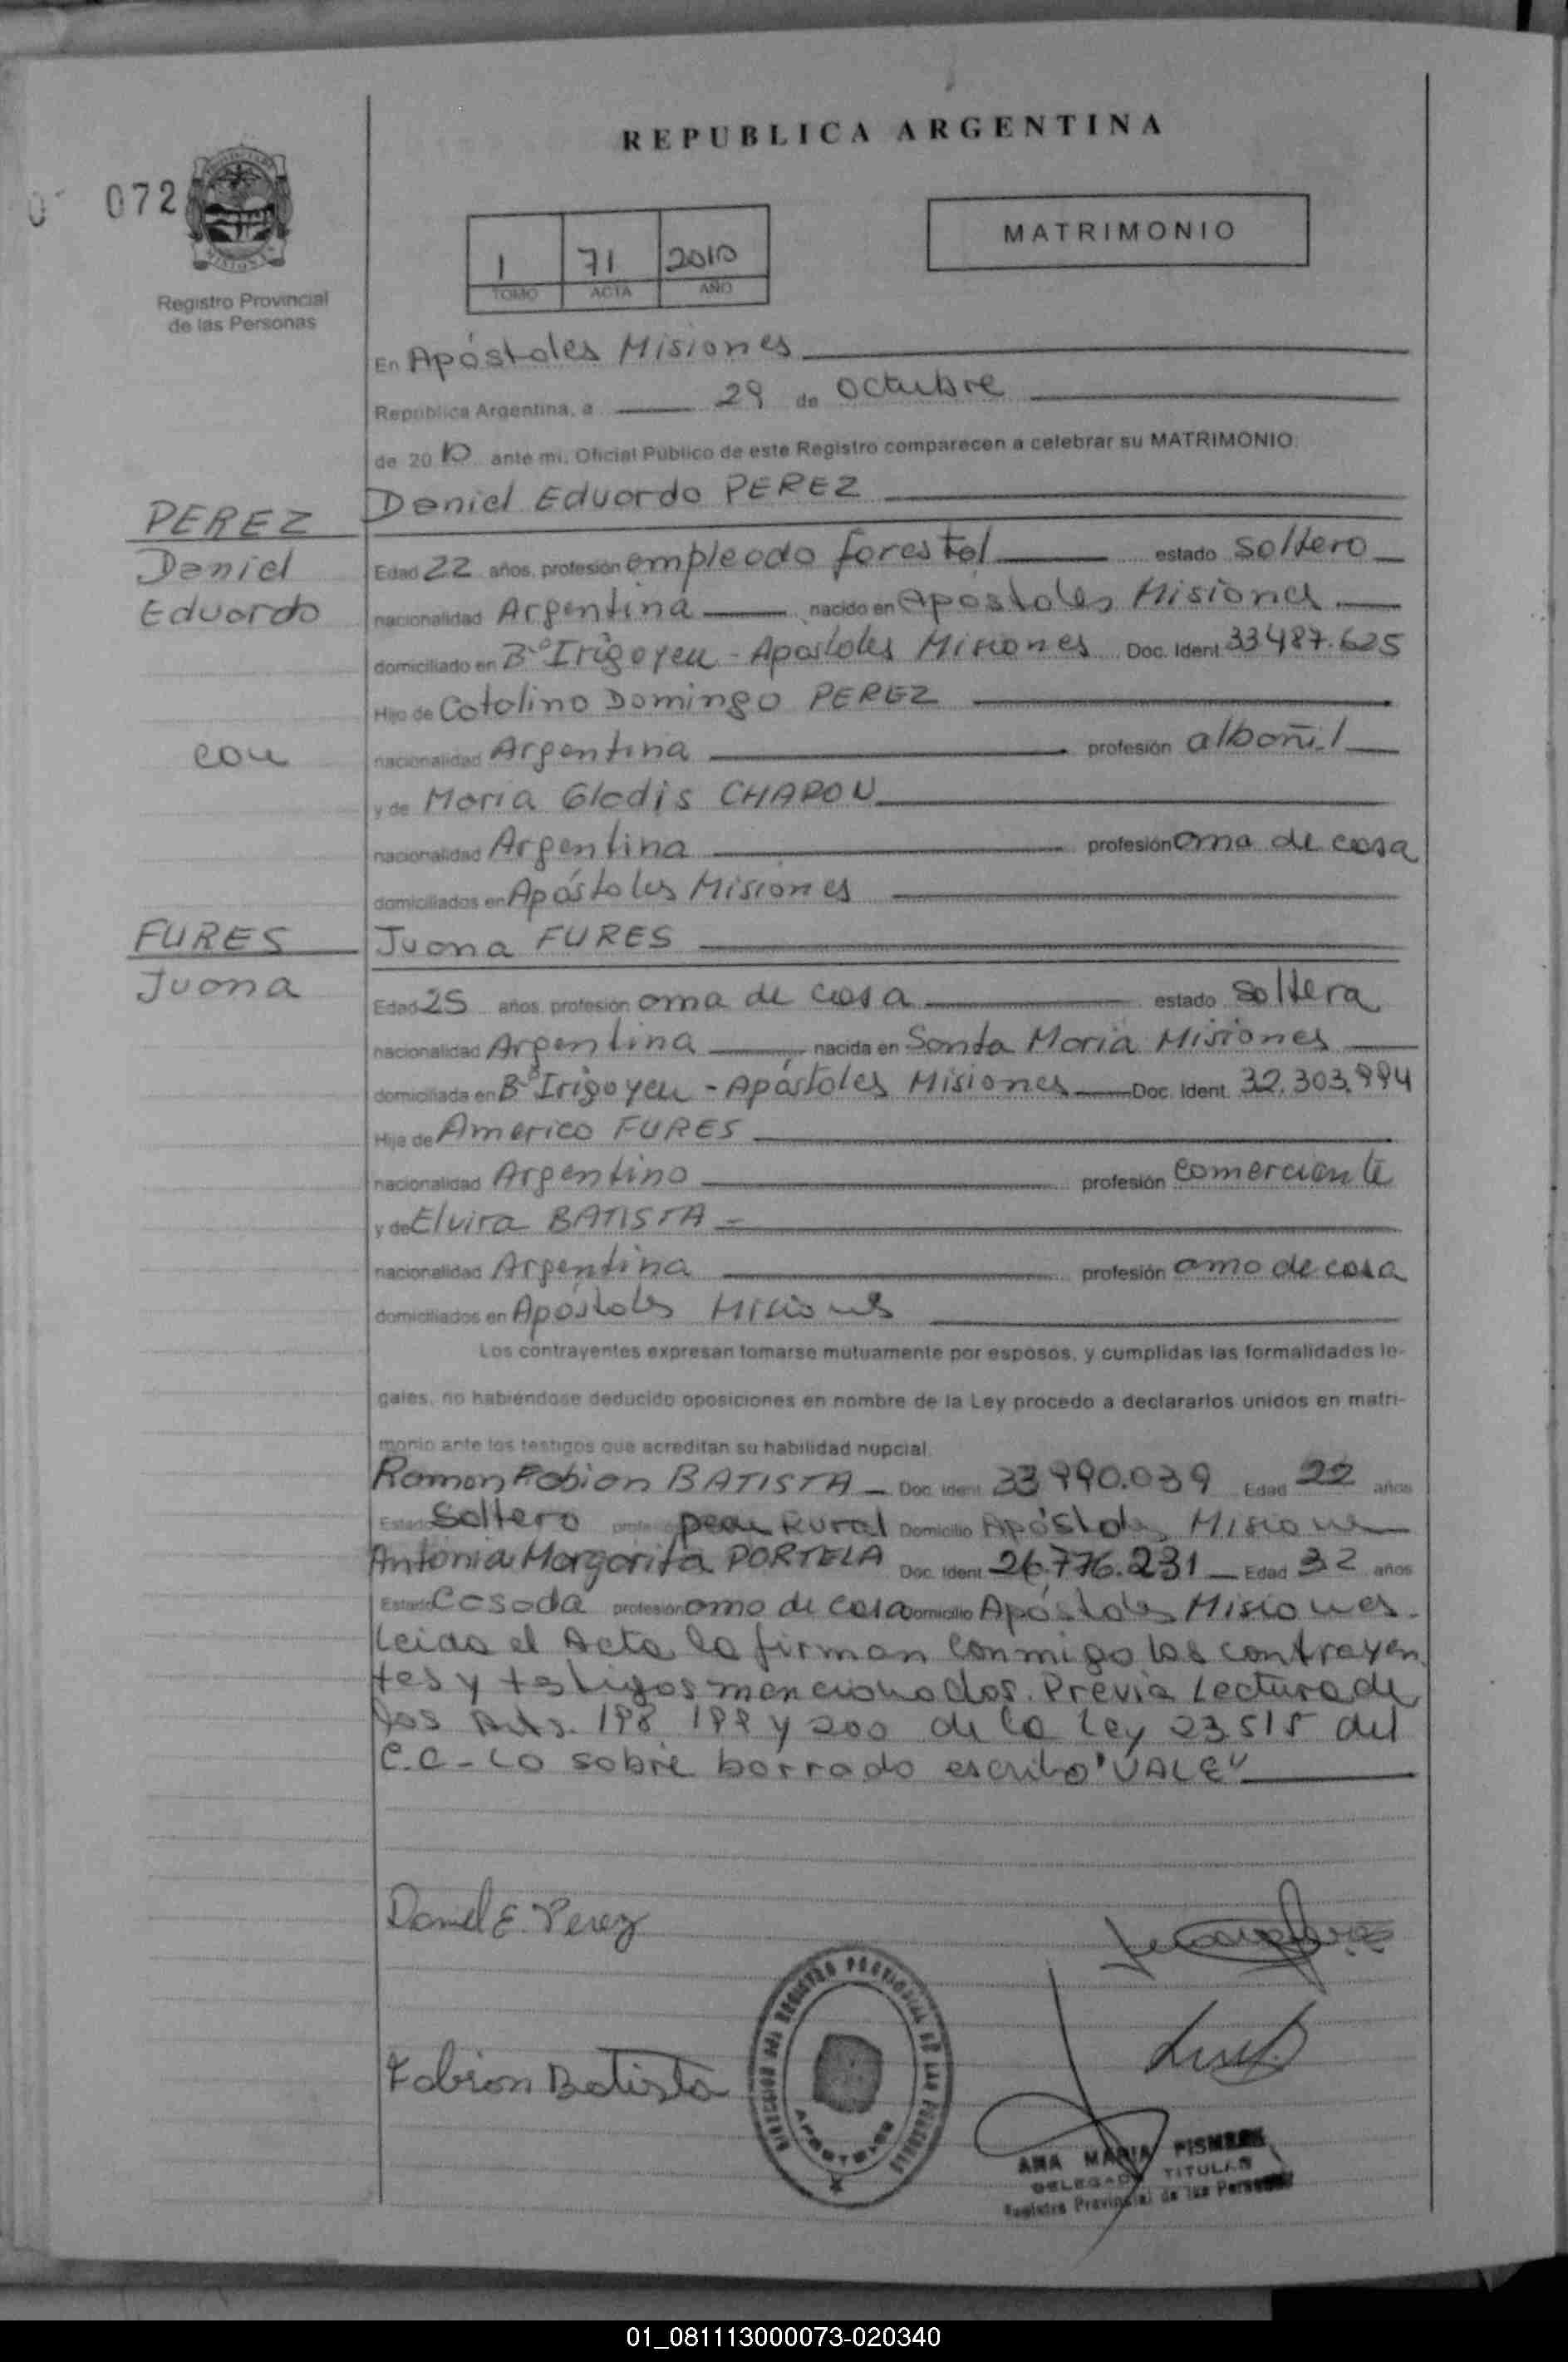 REPUBLICA ARGENTINA
072
MISIONES
Registro Provincial
de las Personas
1 71 2010
TOMO ACTA AÑO
MATRIMONIO
En Apóstoles Misiones
República Argentina, a 29 de octubre
de 2010 ante mi, Oficial Público de este Registro comparecen a celebrar su MATRIMONIO:
PEREZ
Daniel
Eduardo
con
FURES
Juana
Daniel Eduardo PEREZ
Edad 22 años, profesión empleado forestal estado soltero
nacionalidad Argentina nacido en Apóstoles Misiones
domiciliado en Bº Irigoyen - Apóstoles Misiones Doc. Ident. 33487.625
Hijo de Catalino Domingo PEREZ
nacionalidad Argentina profesión albañil
y de Maria Gladis
nacionalidad Argentina profesión ama de casa
domiciliados en Apóstoles Misiones
Juana FURES
Edad 25 años, profesión ama de casa estado soltera
nacionalidad Argentina nacida en Santa Maria Misiones
domiciliada en Bº Irigoyen - Apóstoles Misiones Doc. Ident. 32.303.994
Hija de Americo FURES
nacionalidad Argentino profesión comerciante
y de Elvira BATISTA
nacionalidad Argentina profesión ama de casa
domiciliados en Apóstoles Misiones
Los contrayentes expresan tomarse mutuamente por esposos, y cumplidas las formalidades le-
gales, no habiéndose deducido oposiciones en nombre de la Ley procedo a declararlos unidos en matri-
monio ante los testigos que acreditan su habilidad nupcial.
Ramon Fabian BATISTA Doc. Ident. 33990.039 Edad 22 años
Estado Soltero profesión peon Rural Domicilio Apóstoles Misiones
Antonia Margarita PORTELA Doc. Ident. 26.776.231 Edad 32 años
Estado Casada profesión ama de casa Domicilio Apóstoles Misiones.
Leida el Acta la firman conmigo los contrayen
tes y testigos mencionados. Previa Lectura de
los Arts. 198 199 y 200 de la Ley 23.515 del
C.C - Lo sobre borrado escrito "VALE"
Daniel E. Perez
Fabian Batista
DIRECCION DEL REGISTRO PROVINCIAL DE LAS PERSONAS
APOSTOLES
ANA MARIA
DELEGADA TITULAR
Registro Provincial de las Personas
01_081113000073-020340